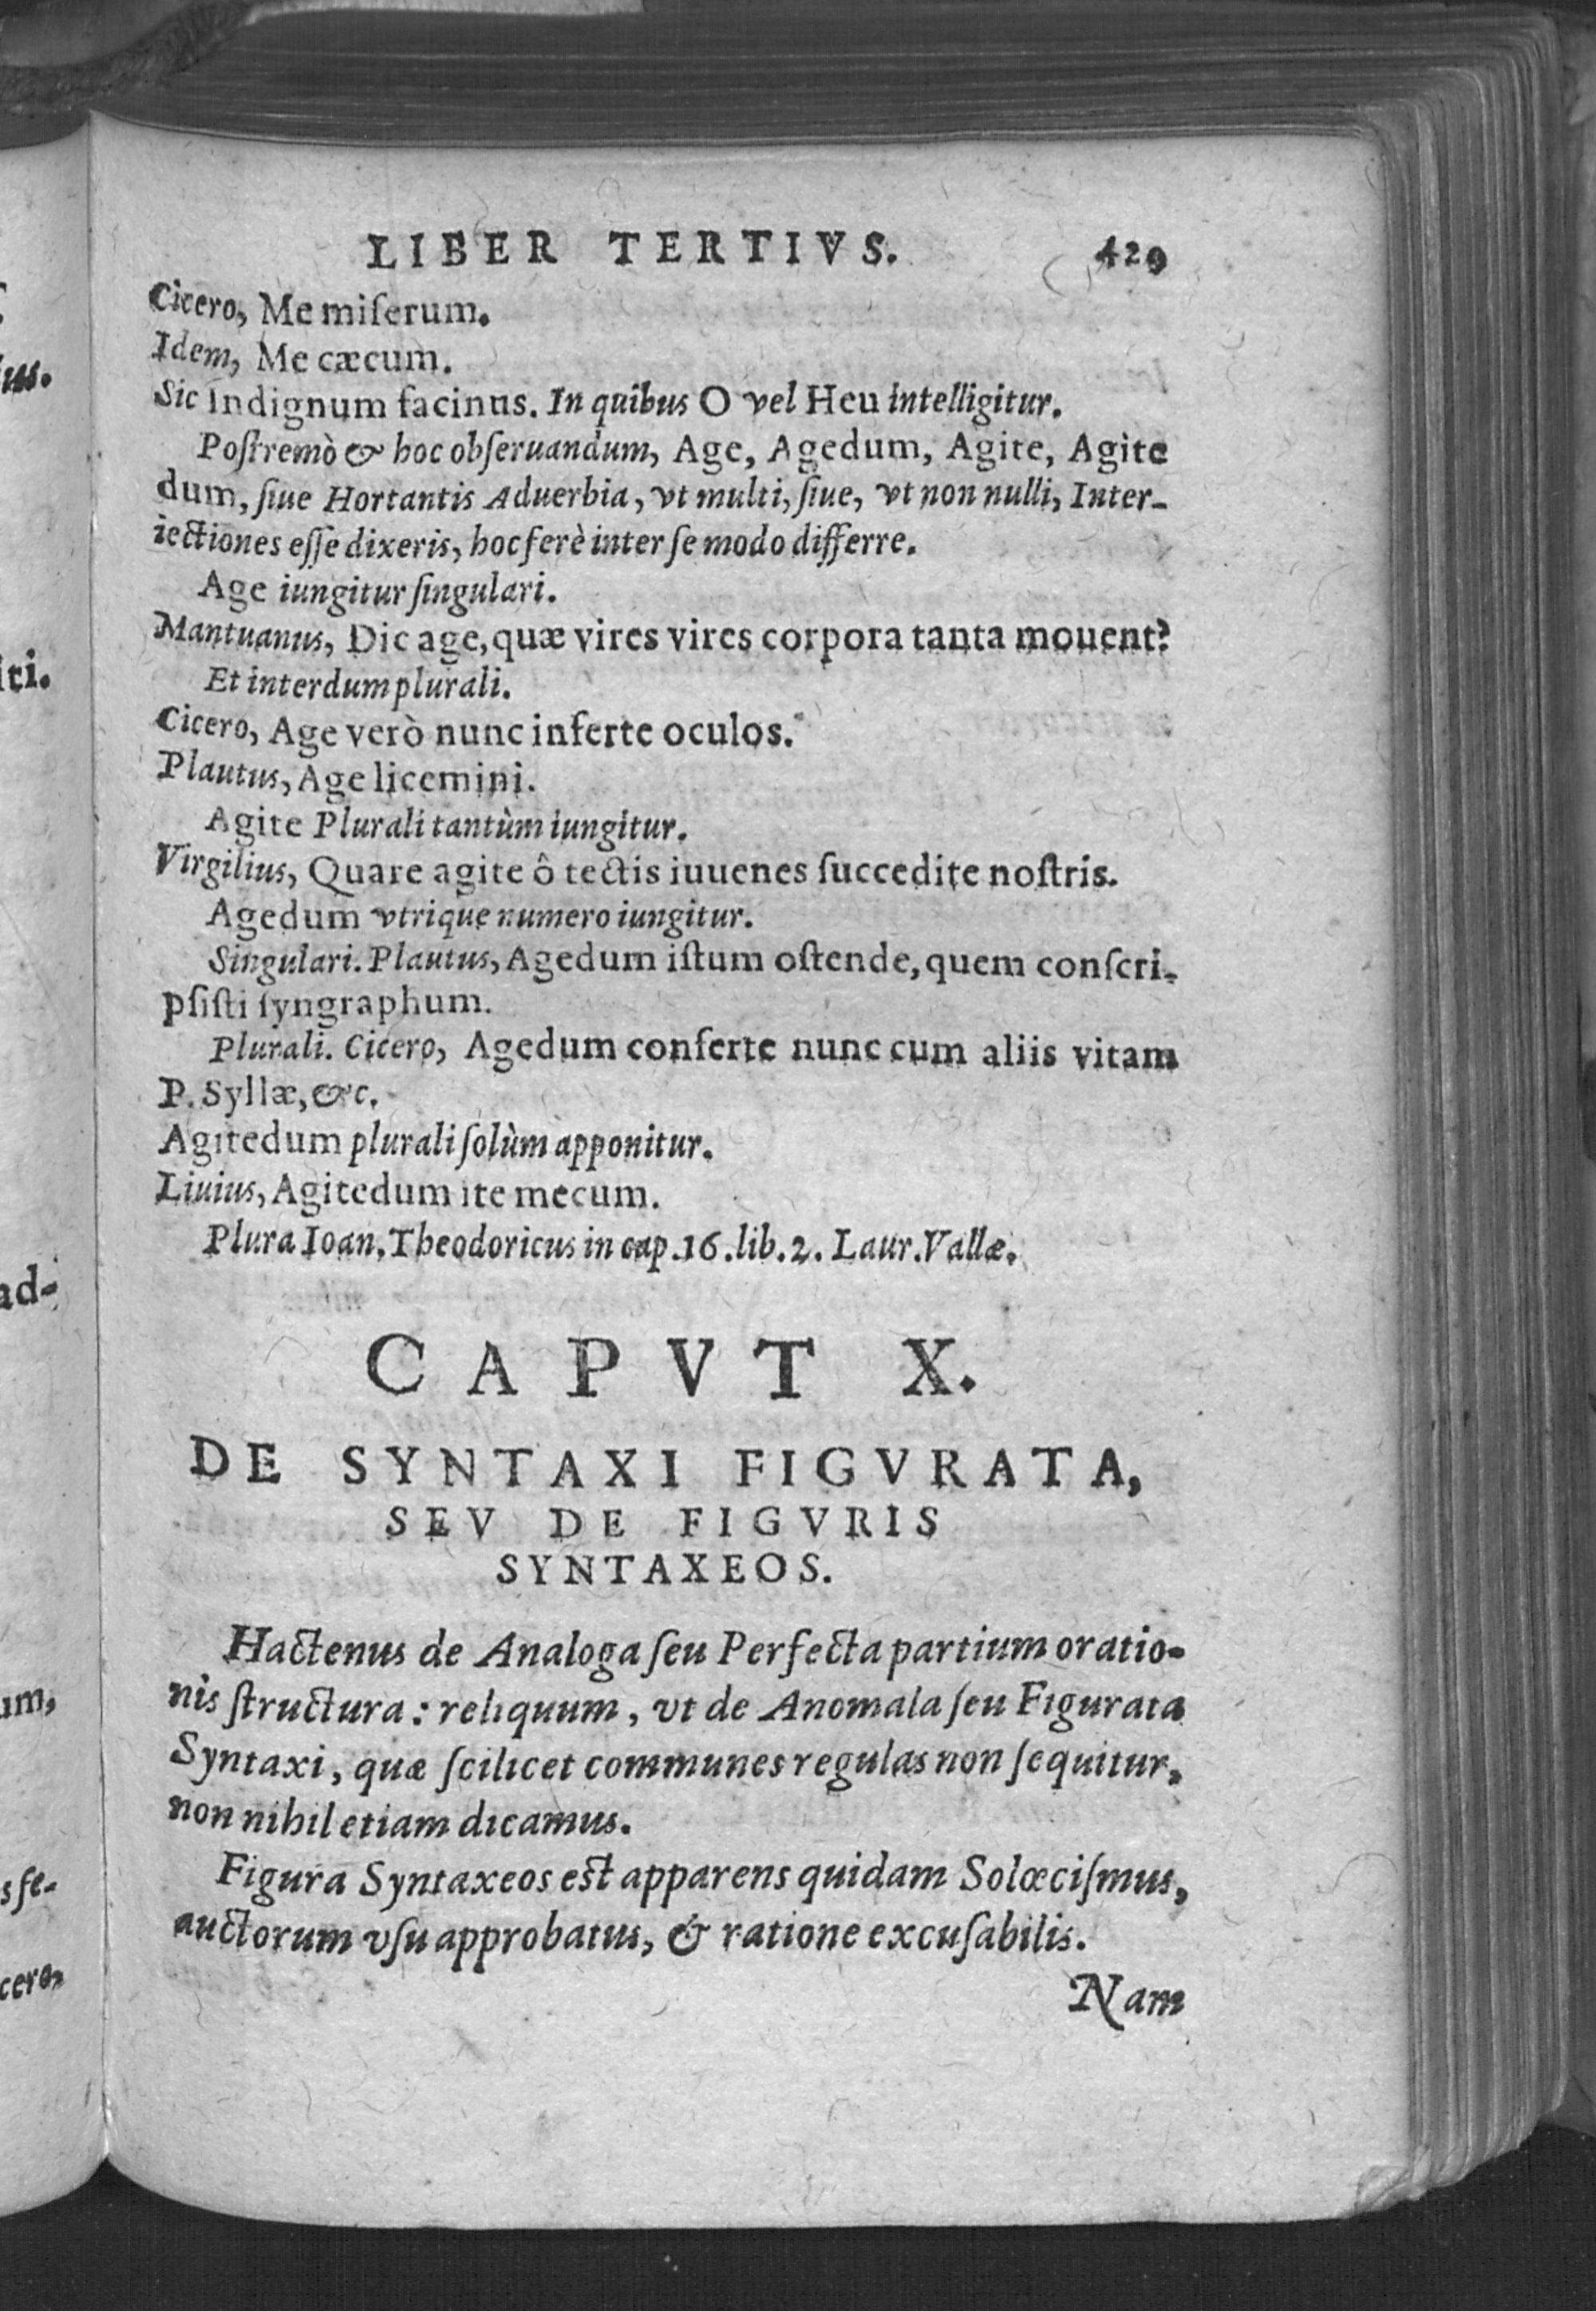 LIBER TERTIVS. 429
Cicero, Me miſerum.
Idem, Me cæcum.
Sic Indignum facinus. In quibus O vel Heu intelligitur.
Poſtremò & hoc obſeruandum, Age, Agedum, Agite, Agite
dum, ſiue Hortantis Aduerbia, vt multi, ſiue, vt non nulli, Inter-
iectiones eſſe dixeris, hoc ferè inter ſe modo differre.
Age iungitur ſingulari.
Mantuanus, Dic age, quæ vires vires corpora tanta mouent?
Et interdum plurali.
Cicero, Age verò nunc inferte oculos.
Plautus, Age licemini.
Agite Plurali tantùm iungitur.
Virgilius, Quare agite ô tectis iuuenes ſuccedite noſtris.
Agedum vtrique numero iungitur.
Singulari. Plautus, Agedum iſtum oſtende, quem conſcri-
pſiſti ſyngraphum.
Plurali. Cicero, Agedum conferte nunc cum aliis vitam
P. Syllæ, &c.
Agitedum plurali ſolùm apponitur.
Liuius, Agitedum ite mecum.
Plura Ioan. Theodoricus in cap. 16. lib. 2. Laur. Vallæ.
CAPVT X.
DE SYNTAXI FIGVRATA,
SEV DE FIGVRIS
SYNTAXEOS.
Hactenus de Analoga ſeu Perfecta partium oratio-
nis ſtructura: reliquum, vt de Anomala ſeu Figurata
Syntaxi, quæ ſcilicet communes regulas non ſequitur,
non nihil etiam dicamus.
Figura Syntaxeos eſt apparens quidam Solœciſmus,
auctorum vſu approbatus, & ratione excuſabilis.
Nam
iti.
ad-
um,
s ſe-
cero,